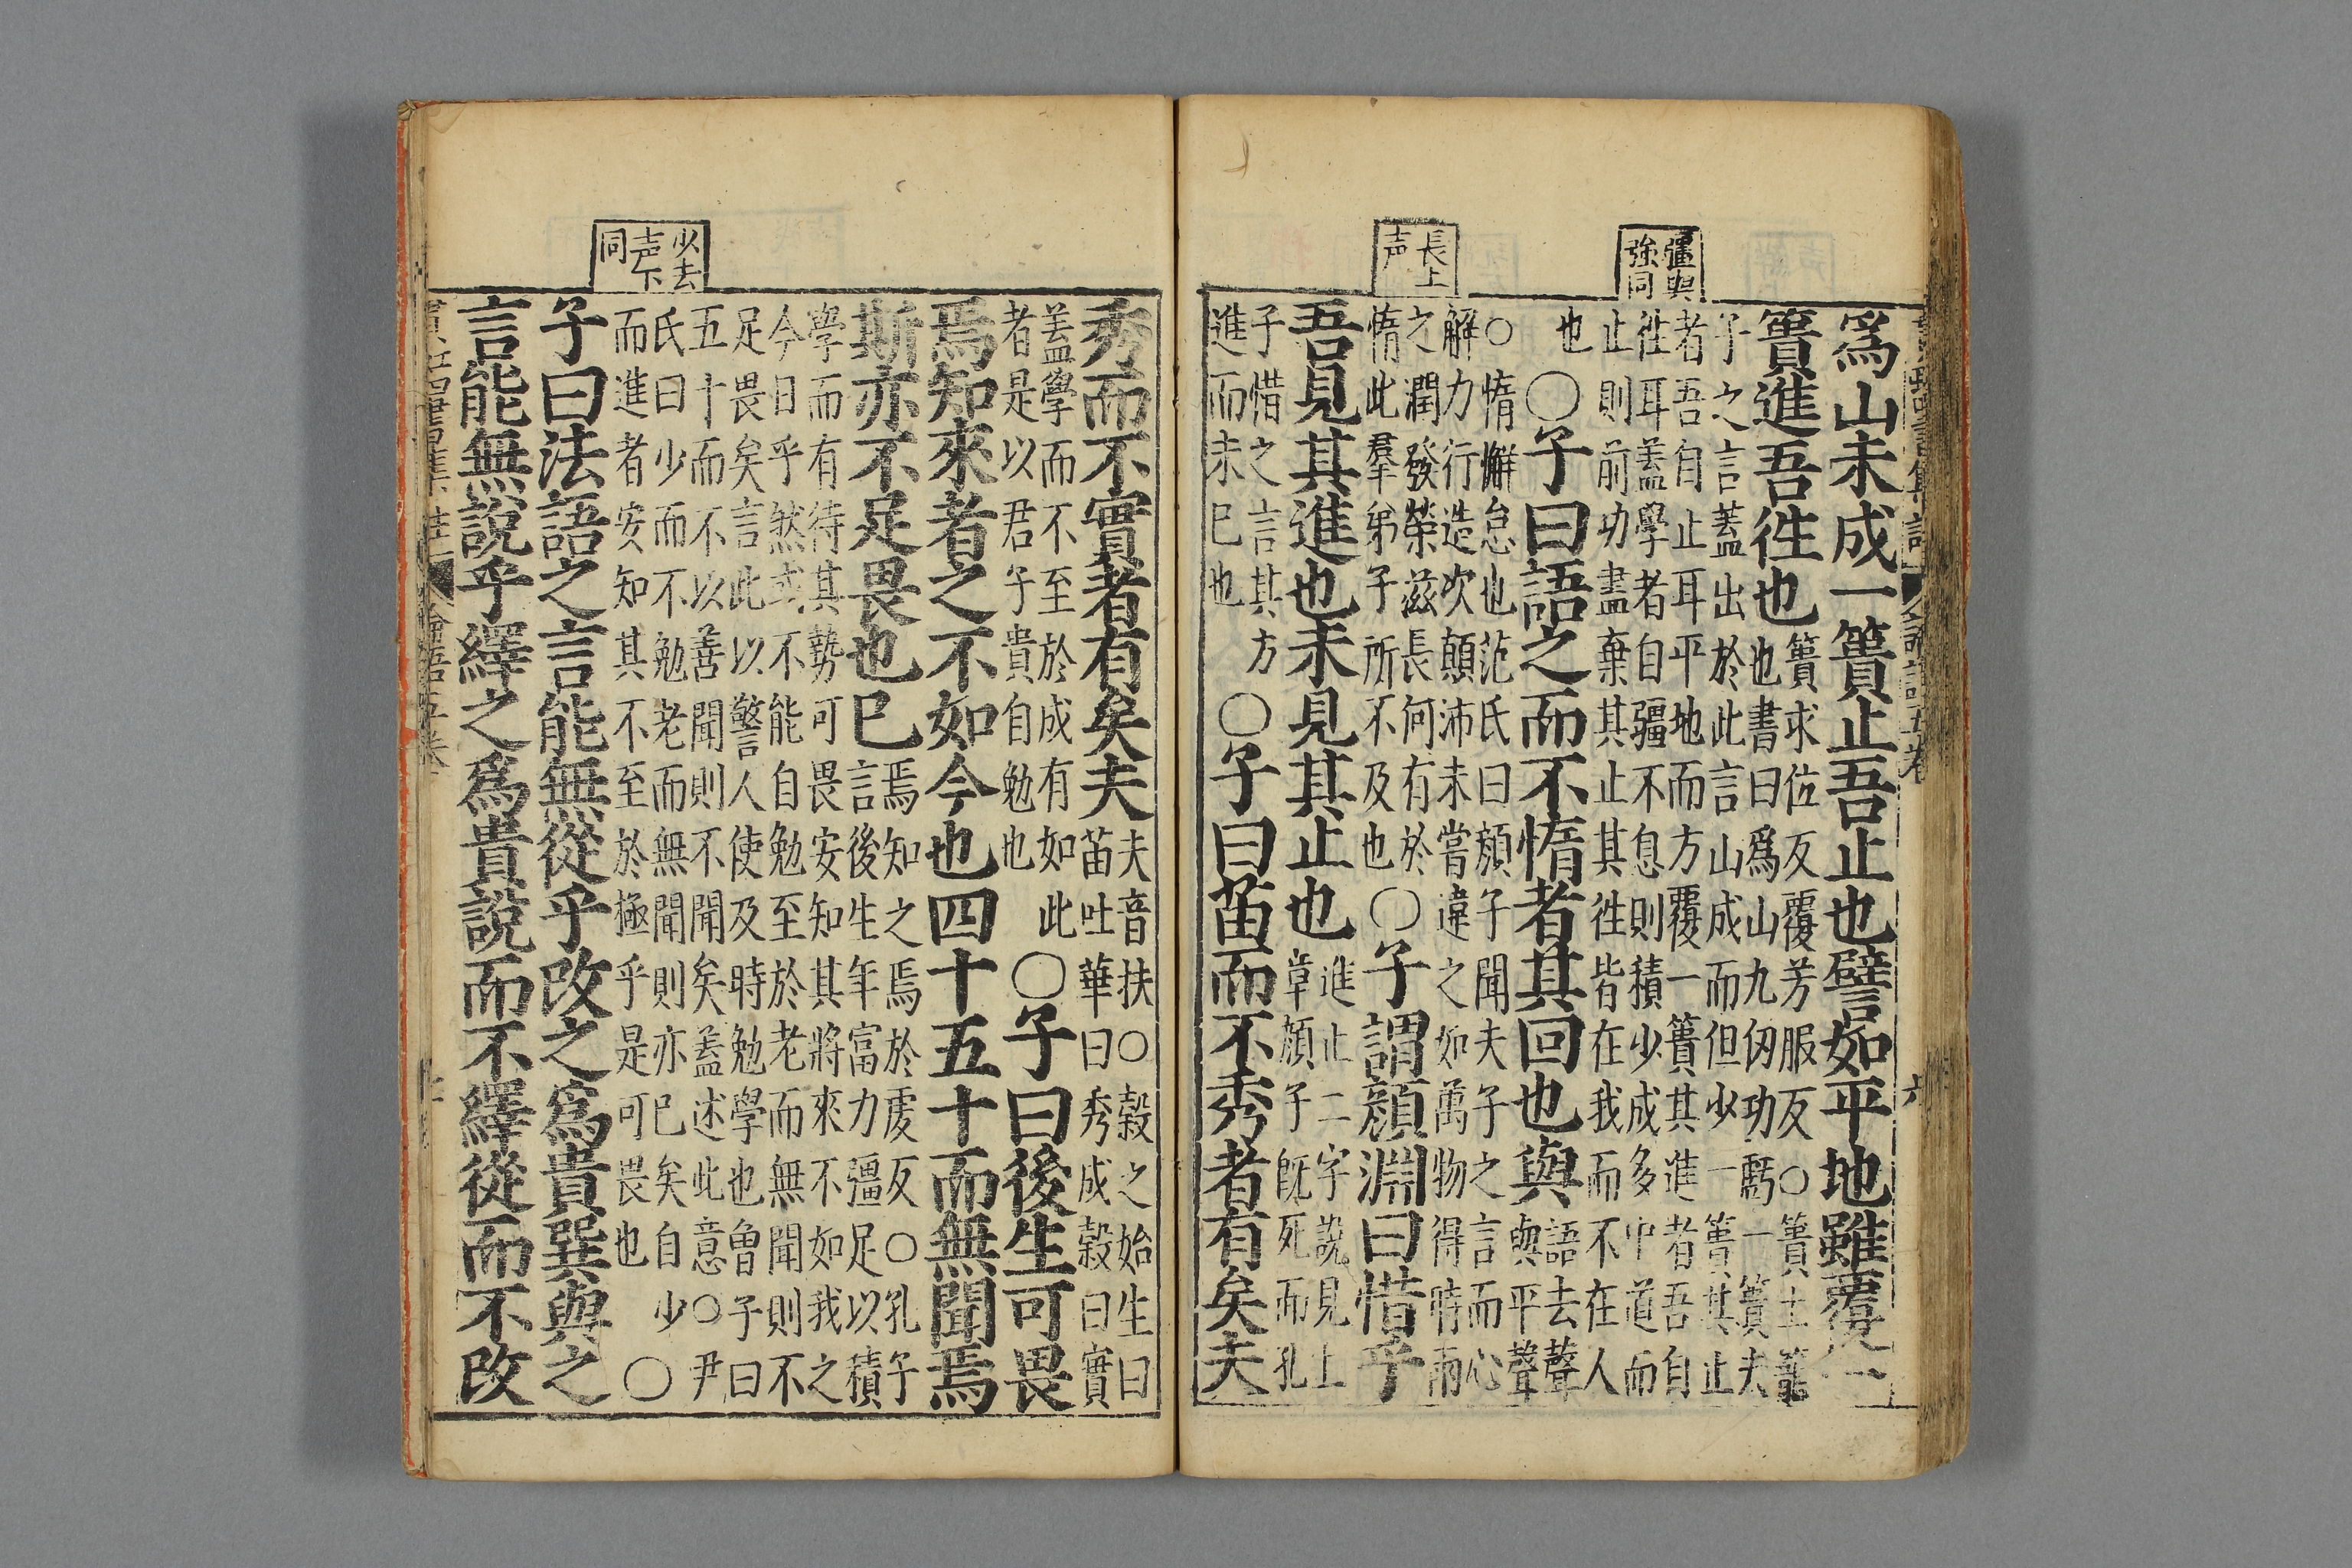 彊與
強同
長上
声
爲山未成一簣止吾止也譬如平地雖覆一
簣進吾徃也
簣求位反覆芳服反○簣土籠
也書曰爲山九仞功虧一簣夫
子之言蓋出於此言山成而但少一簣其止
者吾自止耳平地而方覆一簣其進者吾自
徃耳蓋學者自彊不息則積少成多中道而
止則前功盡棄其止其徃皆在我而不在人
也
○子曰語之而不惰者其回也與
語去聲
與平聲
○惰懈怠也范氏曰顔子聞夫子之言而心
解力行造次顛沛未嘗違之如萬物得時雨
之潤發榮滋長何有於
惰此羣弟子所不及也
○子謂顔淵曰惜乎
吾見其進也未見其止也
進止二字説見上
章顔子既死而孔
子惜之言其方
進而未已也
○子曰苗而不秀者有矣夫
少去
声下
同
秀而不實者有矣夫
夫音扶○穀之始生曰
苗吐華曰秀成穀曰實
蓋學而不至於成有如此
者是以君子貴自勉也
○子曰後生可畏
焉知來者之不如今也四十五十而無聞焉
斯亦不足畏也已
焉知之焉於虔反○孔子
言後生年富力彊足以積
學而有待其勢可畏安知其將來不如我之
今日乎然或不能自勉至於老而無聞則不
足畏矣言此以警人使及時勉學也曾子曰
五十而不以善聞則不聞矣蓋述此意○尹
氏曰少而不勉老而無聞則亦已矣自少
而進者安知其不至於極乎是可畏也
○
子曰法語之言能無從乎改之爲貴巽與之
言能無說乎繹之爲貴說而不繹從而不改